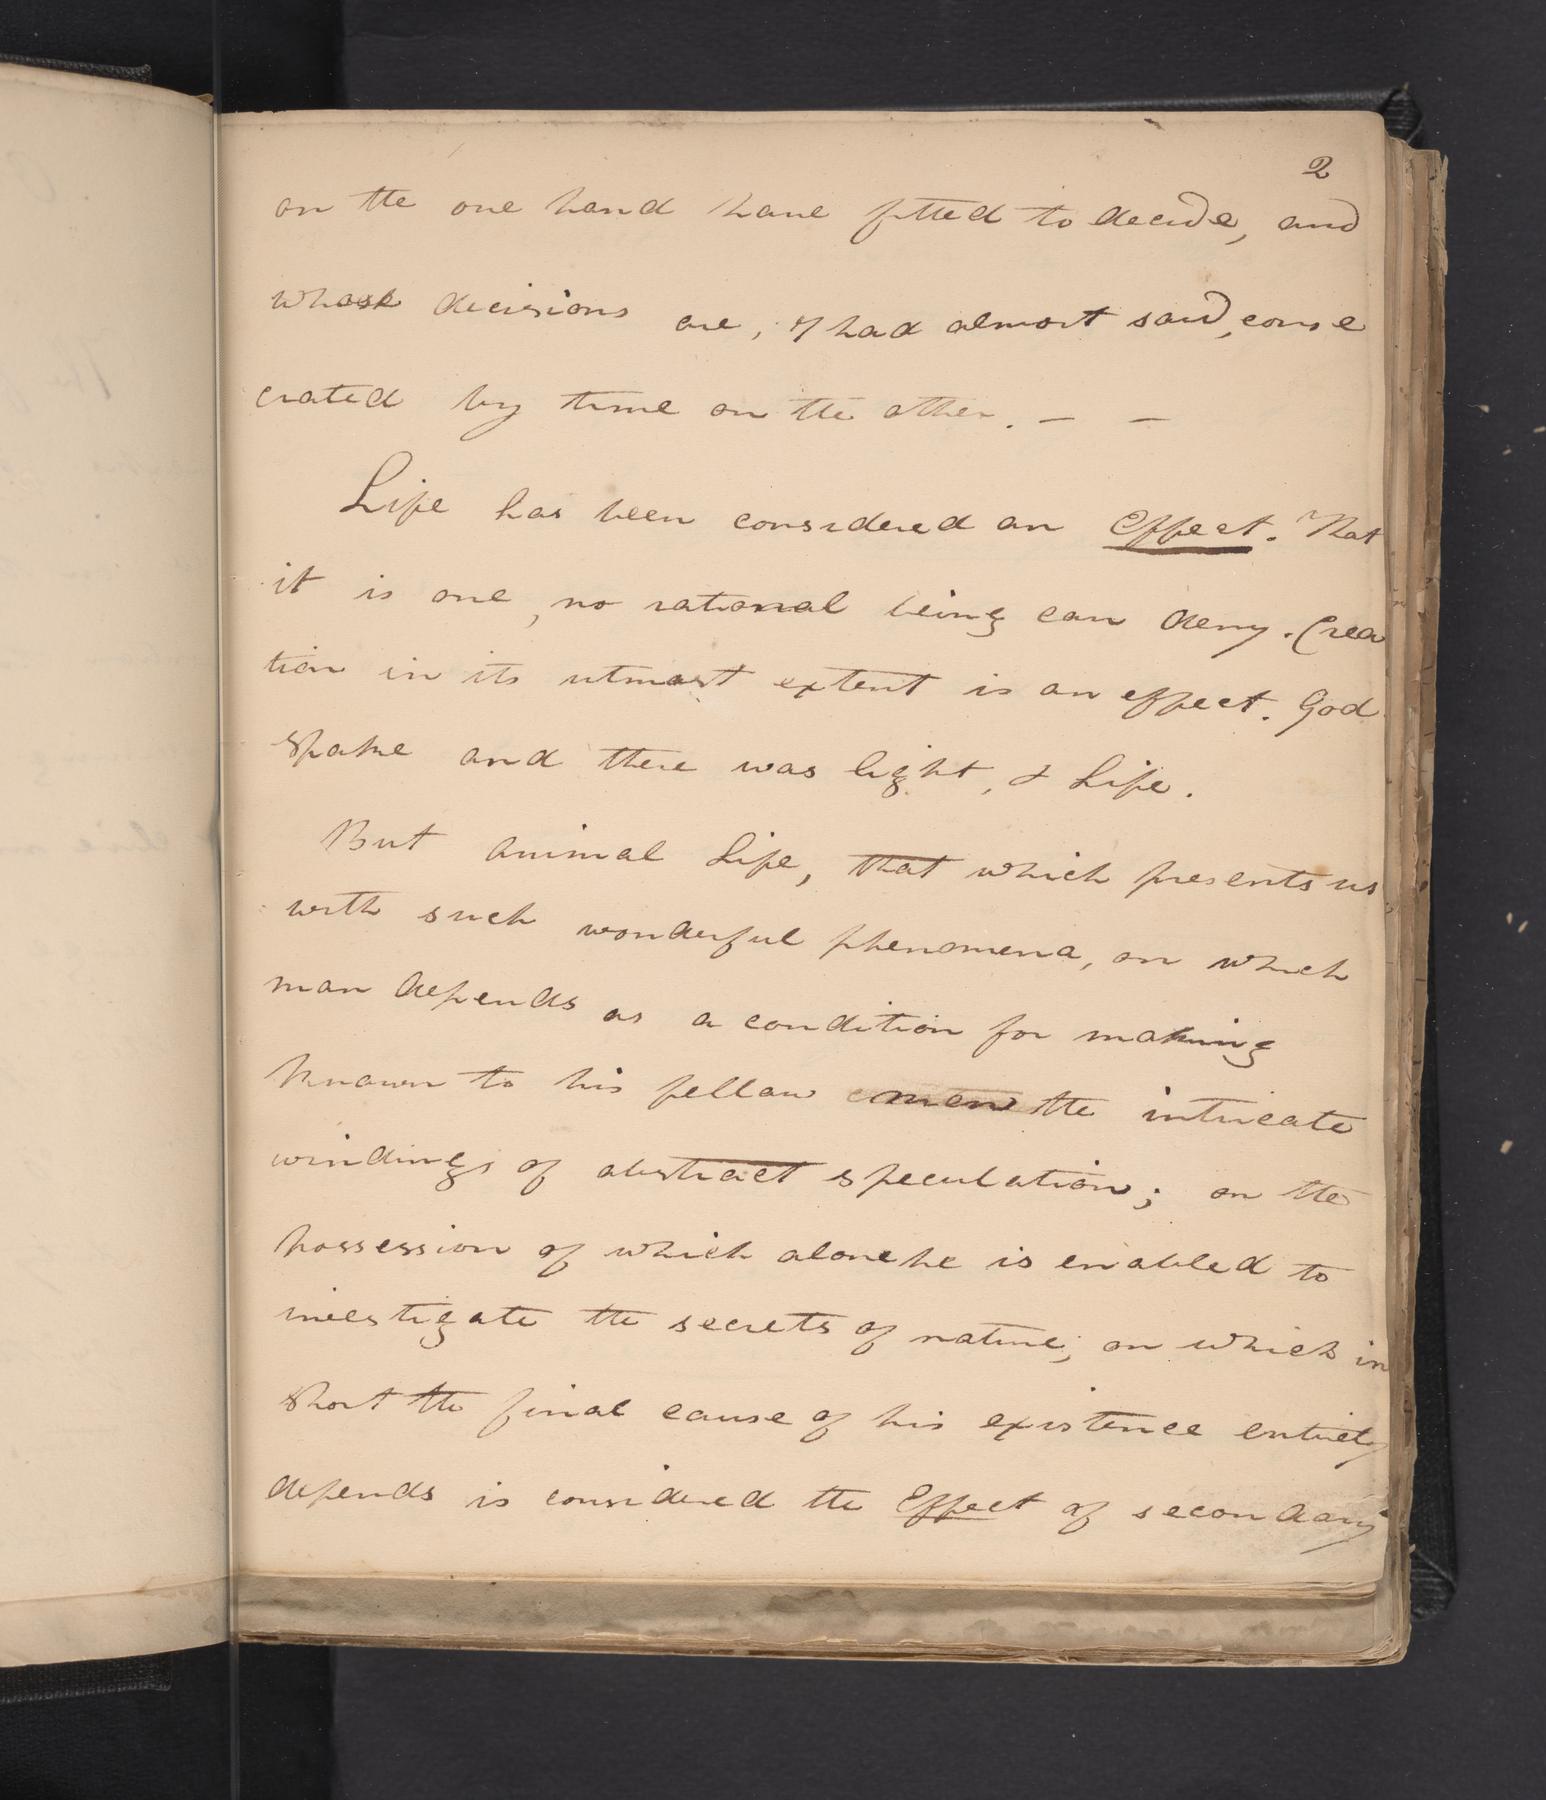 2
on the one hand have fitted to decide, and
whose decisions are, I had almost said, conse
crated by time on the other. — —
Life has been considered an Effect. That
it is one, no rational being can deny. Crea
tion in its utmost extent is an effect. God
spake and there was light, & Life.
But animal Life, that which presents us
with such wonderful phenomena, on which
man depends as a condition for making
known to his fellow men the intricate
windings of abstract speculation; on the
possession of which alone he is enabled to
investigate the secrets of nature; on which in
short the final cause of his existence entirely
depends is considered the Effect of secondary